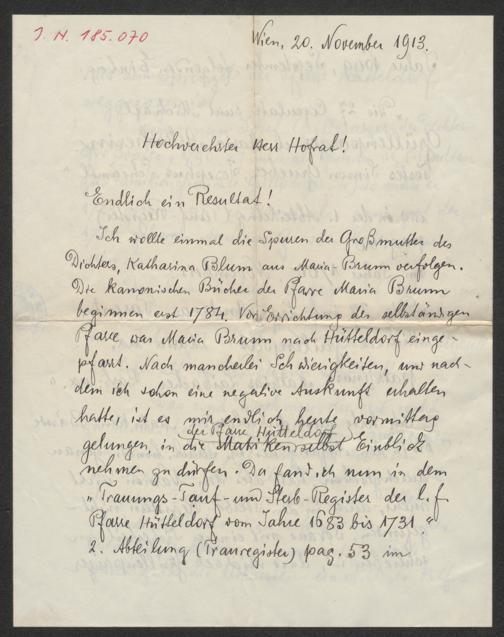 J. N. 185.070
Wien, 20. November 1913.
Hochverehrter Herr Hofrat!
Endlich ein Resultat!
Ich wollte einmal die Spuren der Großmutter des
Dichters, Katharina Blum aus Maria-Brunn verfolgen.
Die kanonischen Bücher der Pfarre Maria Brunn
beginnen erst 1784. Vor Errichtung der selbständigen
Pfarre war Maria Brunn nach Hütteldorf einge-
pfarrt. Nach mancherlei Schwierigkeiten, und nach-
dem ich schon eine negative Auskunft erhalten
hatte, ist es mir endlich heute vormittags
der Pfarre Hütteldorf
gelungen, in die Matriken selbst Einblick
nehmen zu dürfen. Da fand ich nun in dem
"Trauungs-Tauf- und Sterb-Register der l. f.
Pfarre Hütteldorf vom Jahre 1683 bis 1731"
2. Abteilung (Trauregister) pag. 53 im